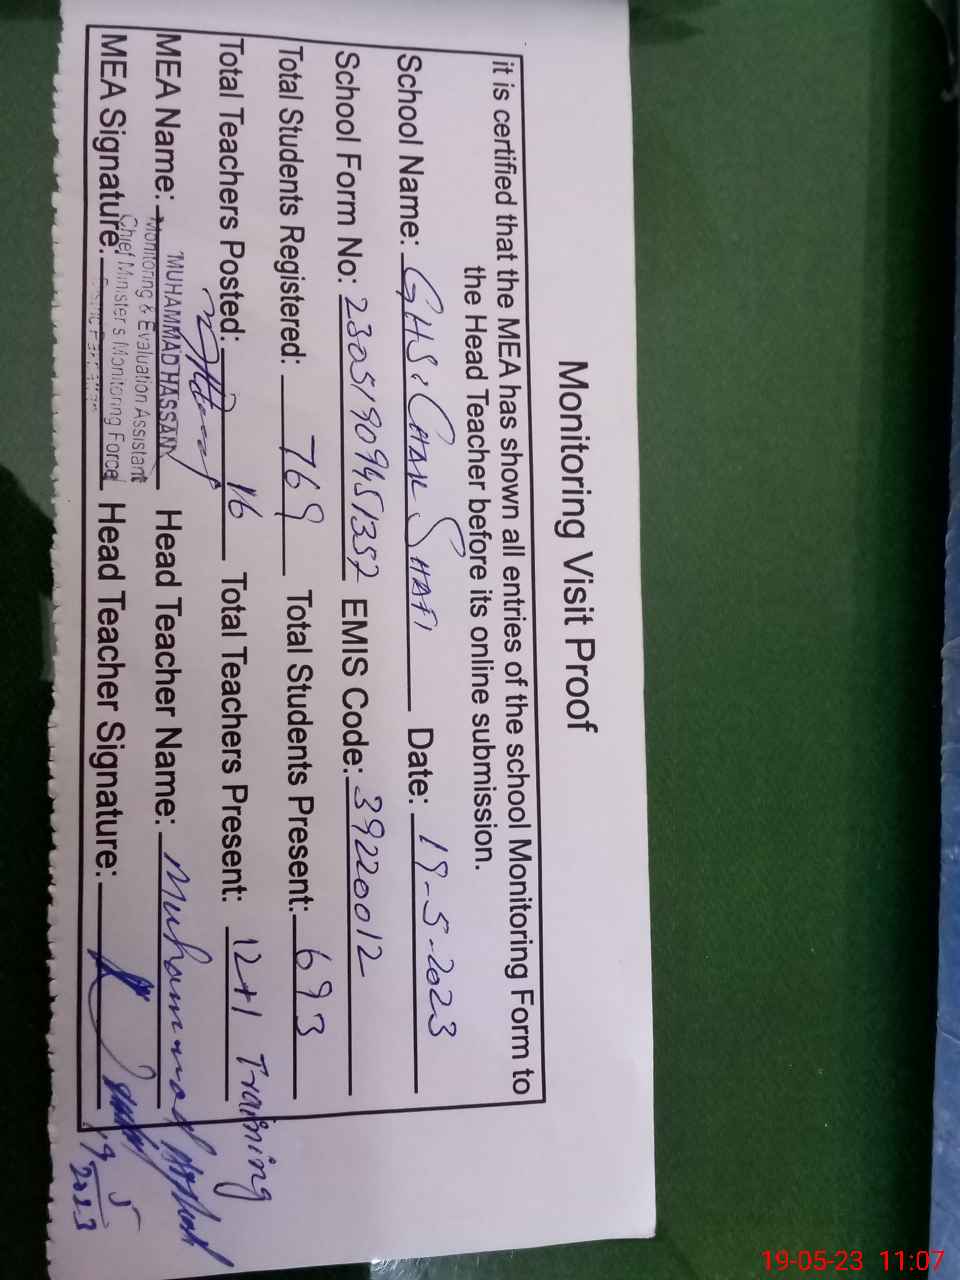 Monitoring Visit Proof
it is certified that the MEA has shown all entries of the school Monitoring Form to
the Head Teacher before its online submission.
School Name: GHS. CHAK SHAFI Date: 19-5-2023
School Form No: 23051909451352 EMIS Code: 39220012
Total Students Registered: 769 Total Students Present: 693
Total Teachers Posted: 16 Total Teachers Present: 12+1 Training
MEA Name: MUHAMMAD HASSAN Head Teacher Name: Muhammad
Monitoring & Evaluation Assistant
Chief Minister's Monitoring Force
MEA Signature: Head Teacher Signature:
19/5
2023
19-05-23 11:07